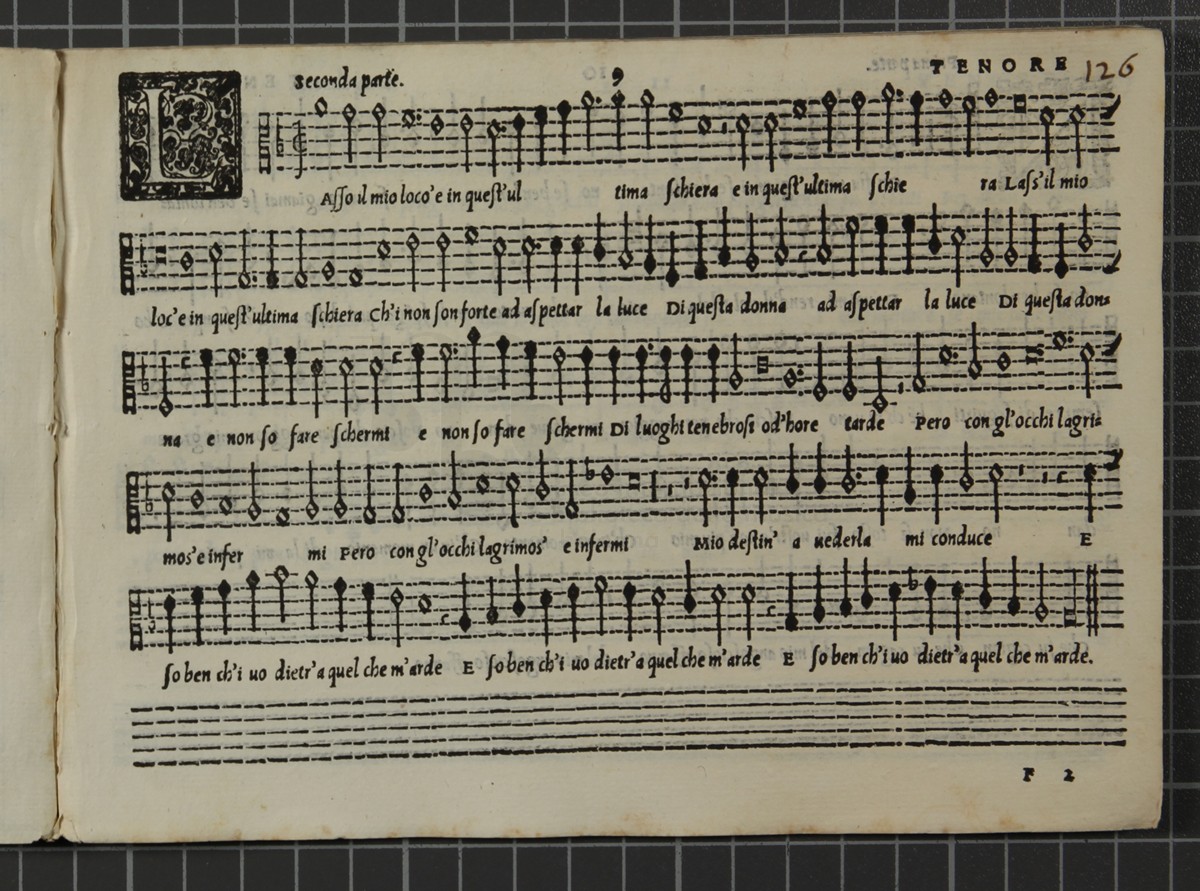 Seconda parte. 9 TENORE 126
LAsso il mio loco'e in quest'ul tima schiera e in quest'ultima schie ra Lass'il mio
loc'e in quest'ultima schiera Ch'i non son forte ad aspettar la luce Di questa donna ad aspettar la luce Di questa don=
na e non so fare schermi e non so fare schermi Di luoghi tenebrosi od'hore tarde Pero con gl'occhi lagri=
mos'e infer mi Pero con gl'occhi lagrimos' e infermi Mio destin' a uederla mi conduce E
so ben ch'i uo dietr'a quel che m'arde E so ben ch'i uo dietr'a quel che m'arde E so ben ch'i uo dietr'a quel che m'arde.
F 2